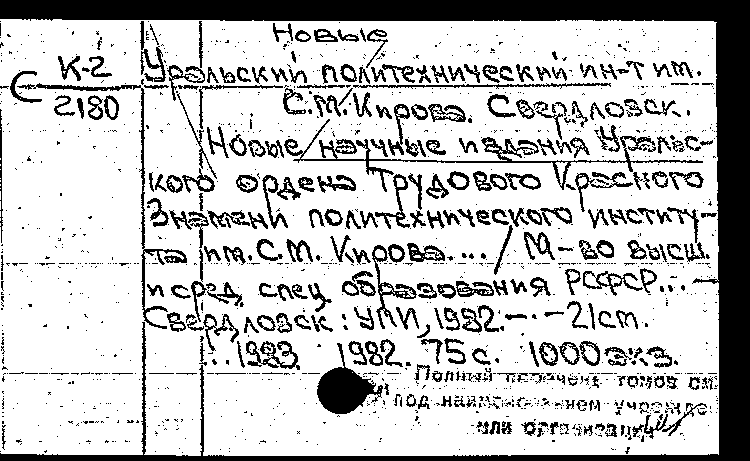 Новые
К-2
С 2180
Уральский политехнический ин-т им.
С.М. Кирова. Свердловск.
Новые научные издания Уральс-
кого ордена Трудового Красного
Знамени политехнического институ-
та им. С.М. Кирова... / М-во высш.
и сред. спец. образования РСФСР... —
Свердловск: УПИ, 1982. — . — 21 см.
...1983. 1982. 75 с. 1000 экз.
Полный перечень томов см.
под наименованием учрежде-
или организации